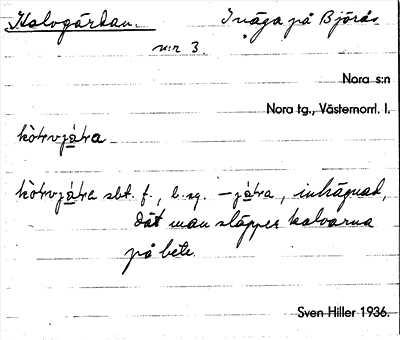 Kalvgårdan. Inäga på Björås
n:r 3.
Nora s:n
Nora tg., Västernorrl. l.
sbt. f., b. sg. inhägnad,
dät man släpper kalvarna
på bete.
Sven Hiller 1936.